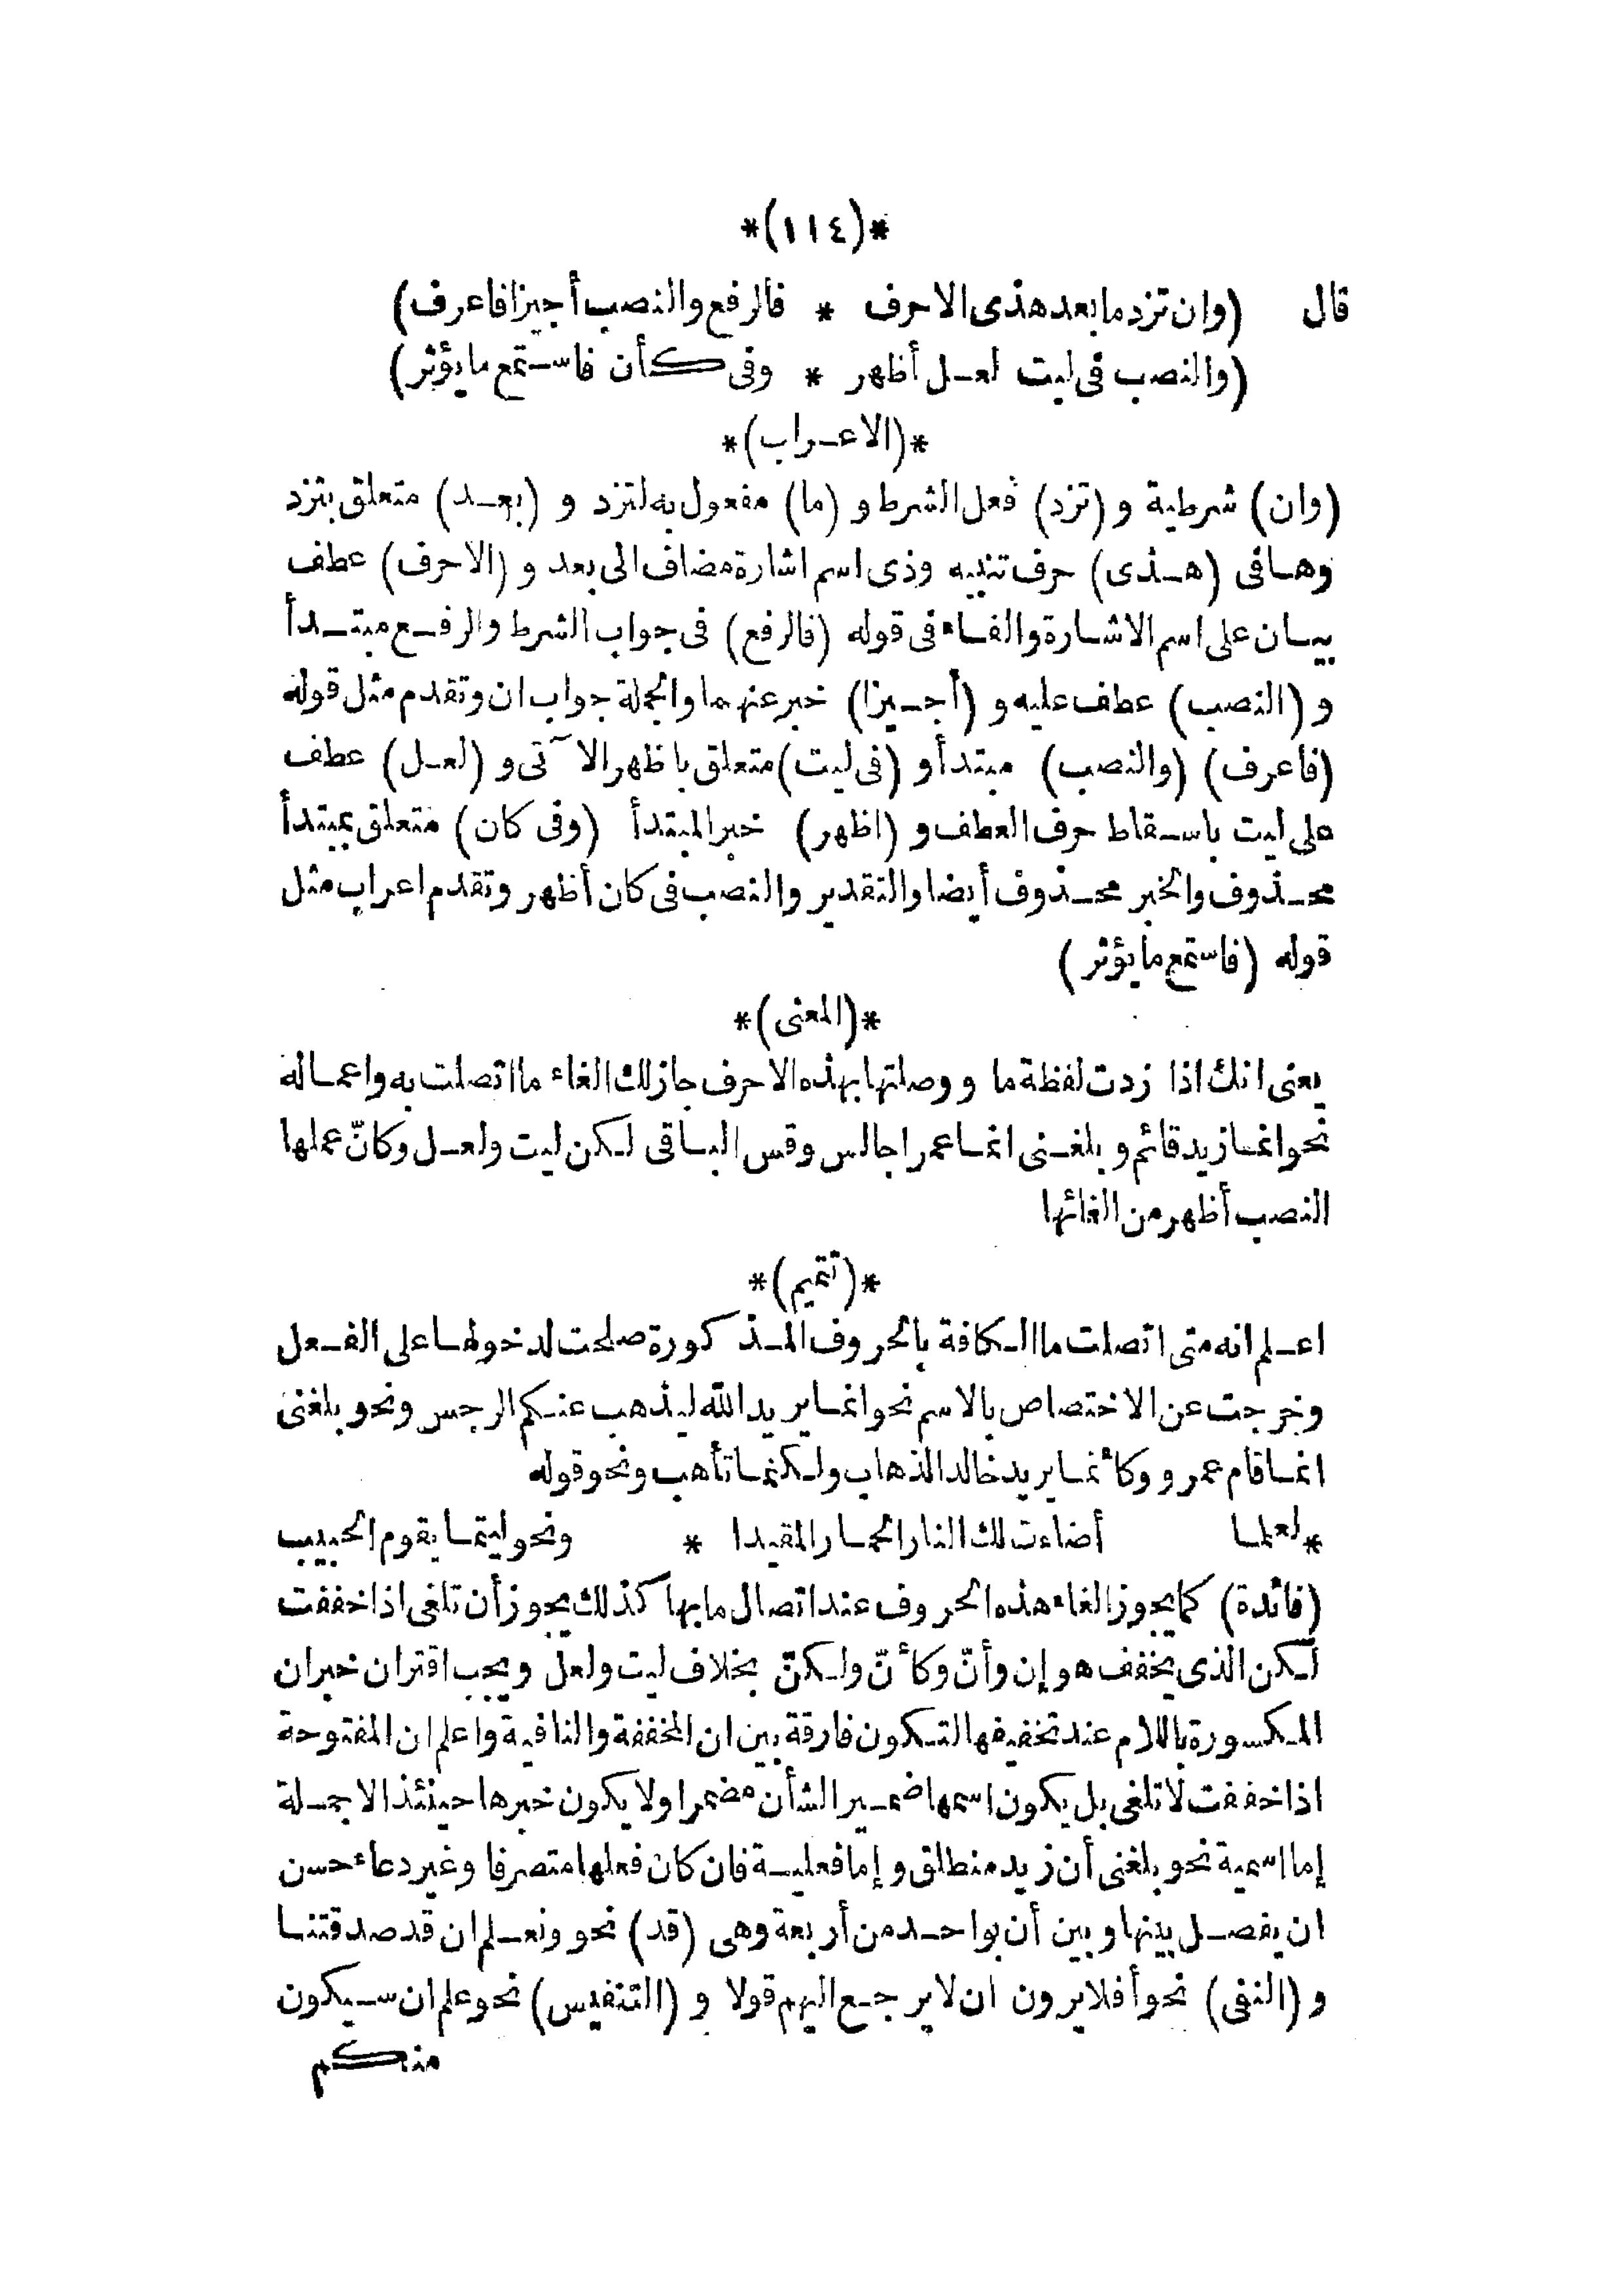 *(١١٤)*
قال (وان تزد ما بعد هذى الاحرف * فالرفع والنصب أجيزا فاعرف)
(والنصب فى ليت لعل أظهر * وفى كأن فاستمع ما يؤثر)
*(الاعراب)*
(وان) شرطية و (تزد) فعل الشرط و (ما) مفعول به لتزد و (بعد) متعلق بتزد
وها فى (هذى) حرف تنبيه وذى اسم اشارة مضاف الى بعد و (الاحرف) عطف
بيان على اسم الاشارة والفاء فى قوله (فالرفع) فى جواب الشرط والرفع مبتدأ
و (النصب) عطف عليه و (أجيزا) خبر عنهما والجملة جواب ان وتقدم مثل قوله
(فاعرف) (والنصب) مبتدأ و (فى ليت) متعلق باظهر الآتى و (لعل) عطف
على ليت باسقاط حرف العطف و (اظهر) خبر المبتدأ (وفى كان) متعلق بمبتدأ
محذوف والخبر محذوف أيضا والتقدير والنصب فى كان أظهر وتقدم اعراب مثل
قوله (فاستمع ما يؤثر)
*(المعنى)*
يعنى انك اذا زدت لفظة ما ووصلتها بهذه الاحرف جاز لك الغاء ما اتصلت به واعماله
نحو انما زيد قائم و بلغنى انما عمرا جالس وقس الباقى لكن ليت ولعل وكانّ عملها
النصب أظهر من الغائها
*(تتميم)*
اعلم انه متى اتصلت ما الكافة بالحروف المذكورة صلحت لدخولها على الفعل
وخرجت عن الاختصاص بالاسم نحو انما يريد الله ليذهب عنكم الرجس ونحو بلغنى
انما قام عمرو وكأنما يريد خالد الذهاب ولكنما تأهب ونحو قوله
*لعلما أضاءت لك النار الحمار المقيدا * ونحو ليتما يقوم الحبيب
(فائدة) كما يجوز الغاء هذه الحروف عند اتصال ما بها كذلك يجوز أن تلغى اذا خففت
لكن الذى يخفف هو إن وأنّ وكأنّ ولكنّ بخلاف ليت ولعل ويجب اقتران خبر ان
المكسورة باللام عند تخفيفها لتكون فارقة بين ان المخففة والنافية واعلم ان المفتوحة
اذا خففت لا تلغى بل يكون اسمها ضمير الشأن مضمرا ولا يكون خبرها حينئذ الا جملة
إما اسمية نحو بلغنى أن زيد منطلق و إما فعلية فان كان فعلها متصرفا وغير دعاء حسن
ان يفصل بينها و بين أن بواحد من أربعة وهى (قد) نحو ونعلم ان قد صدقتنا
و (النفى) نحو أفلا يرون ان لا يرجع اليهم قولا و (التنفيس) نحو علم ان سيكون
منكم